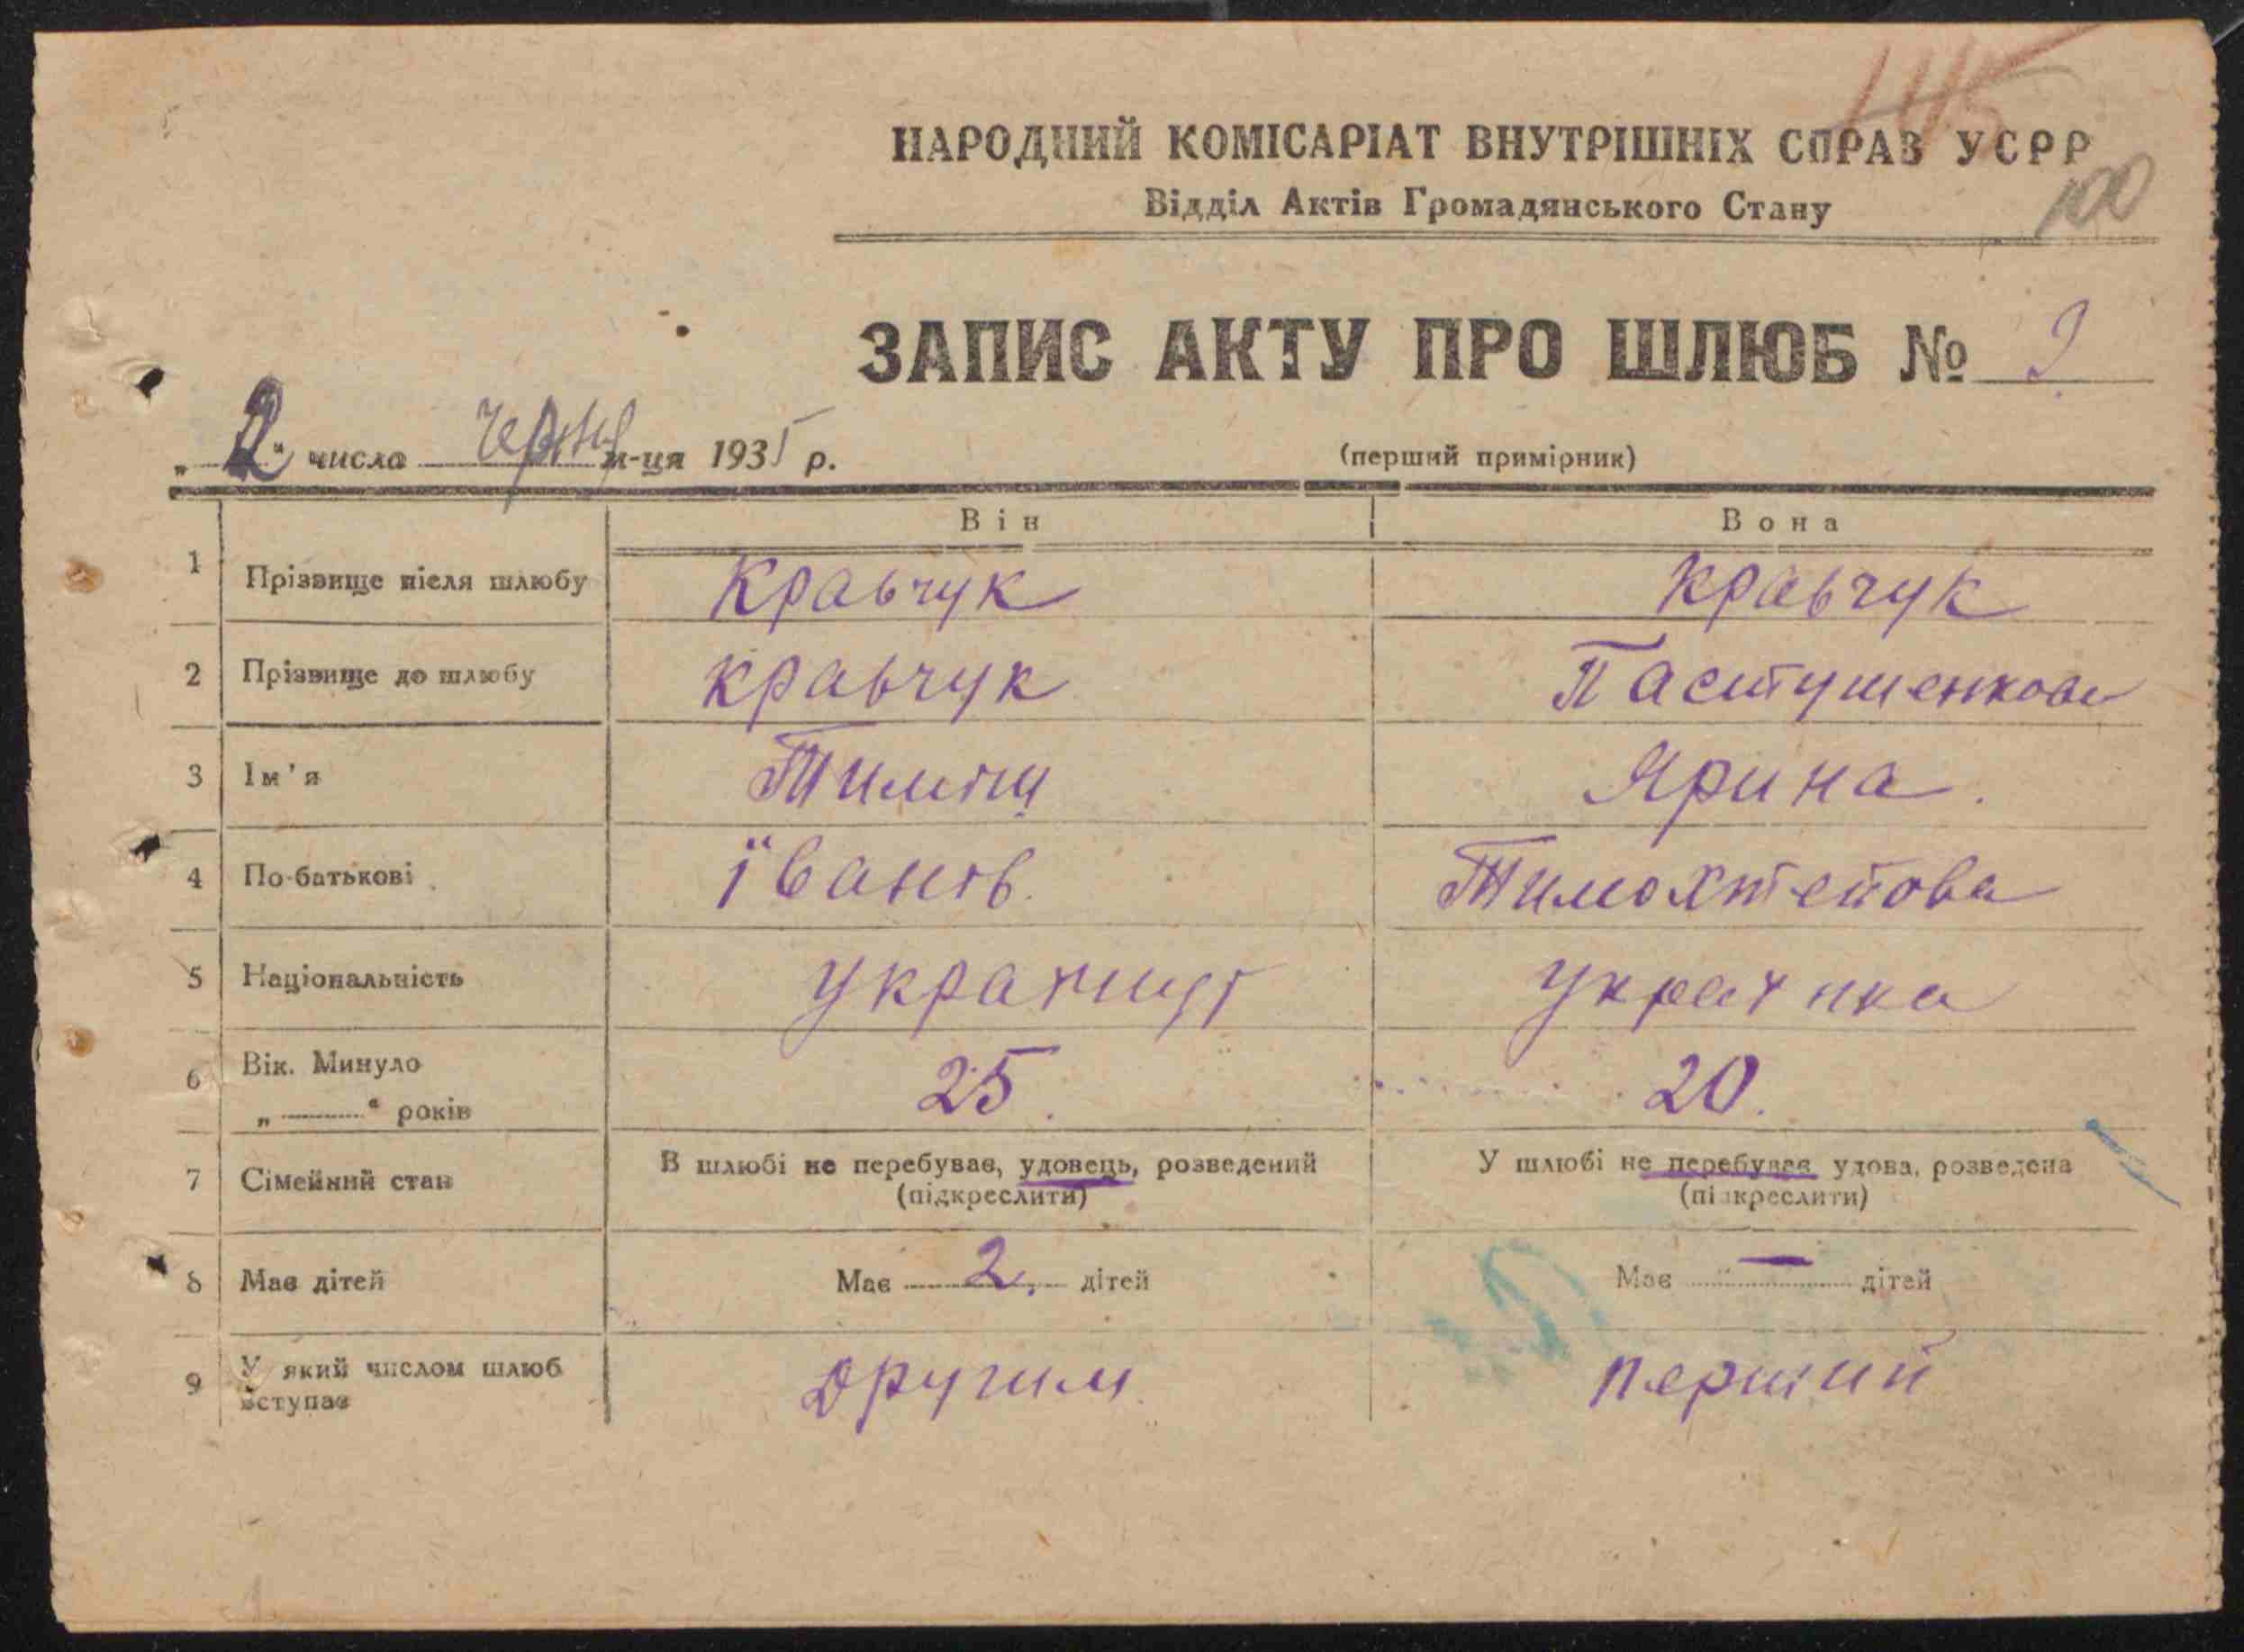 145
НАРОДНИЙ КОМІСАРІАТ ВНУТРІШНІХ СПРАВ УСРР
100
Відділ Актів Громадянського Стану
ЗАПИС АКТУ ПРО ШЛЮБ №
„2“ числа червня м-ця 1935 р.
(перший примірник)
Він Вона
1 Прізвище після шлюбу Кравчук Кравчук
2 Прізвище до шлюбу Кравчук Пастушенкова
3 Ім'я Тиміш Ярина.
4 По-батькові Їванів. Тимохтейова
5 Національність
6 Вік. Минуло „ “ років 25. 20.
7 Сімейний стан В шлюбі не перебував, удовець, розведений (підкреслити) У шлюбі не перебуває удова, розведена (підкреслити)
8 Має дітей Має 2. дітей Має — дітей
9 У який числом шлюб вступає другим перший